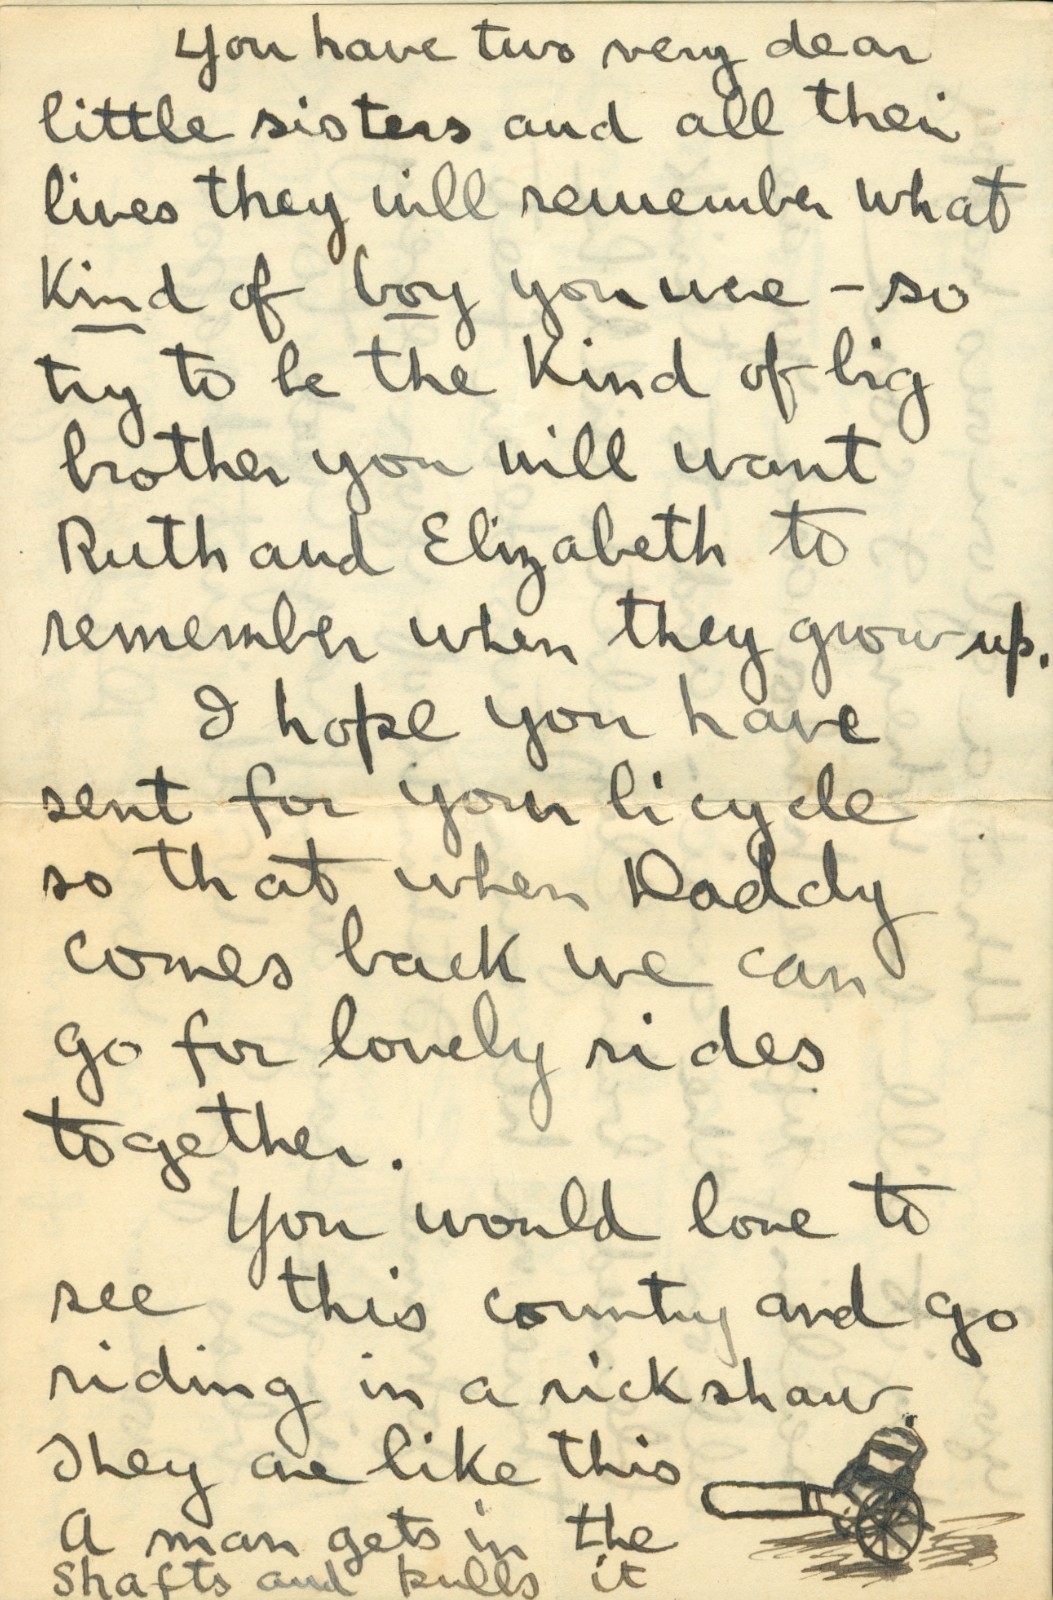 You have two very dear
little sisters and all their
lives they will remember what
kind of boy you were - so
try to be the kind of big
brother you will want
Ruth and Elizabeth to
remember when they grow up.
I hope you have
sent for your bicycle
so that when Daddy
comes back we can
go for lovely rides
together.
You would love to
see this country and go
riding in a rickshaw.
They are like this
A man gets in the
shafts and pulls it